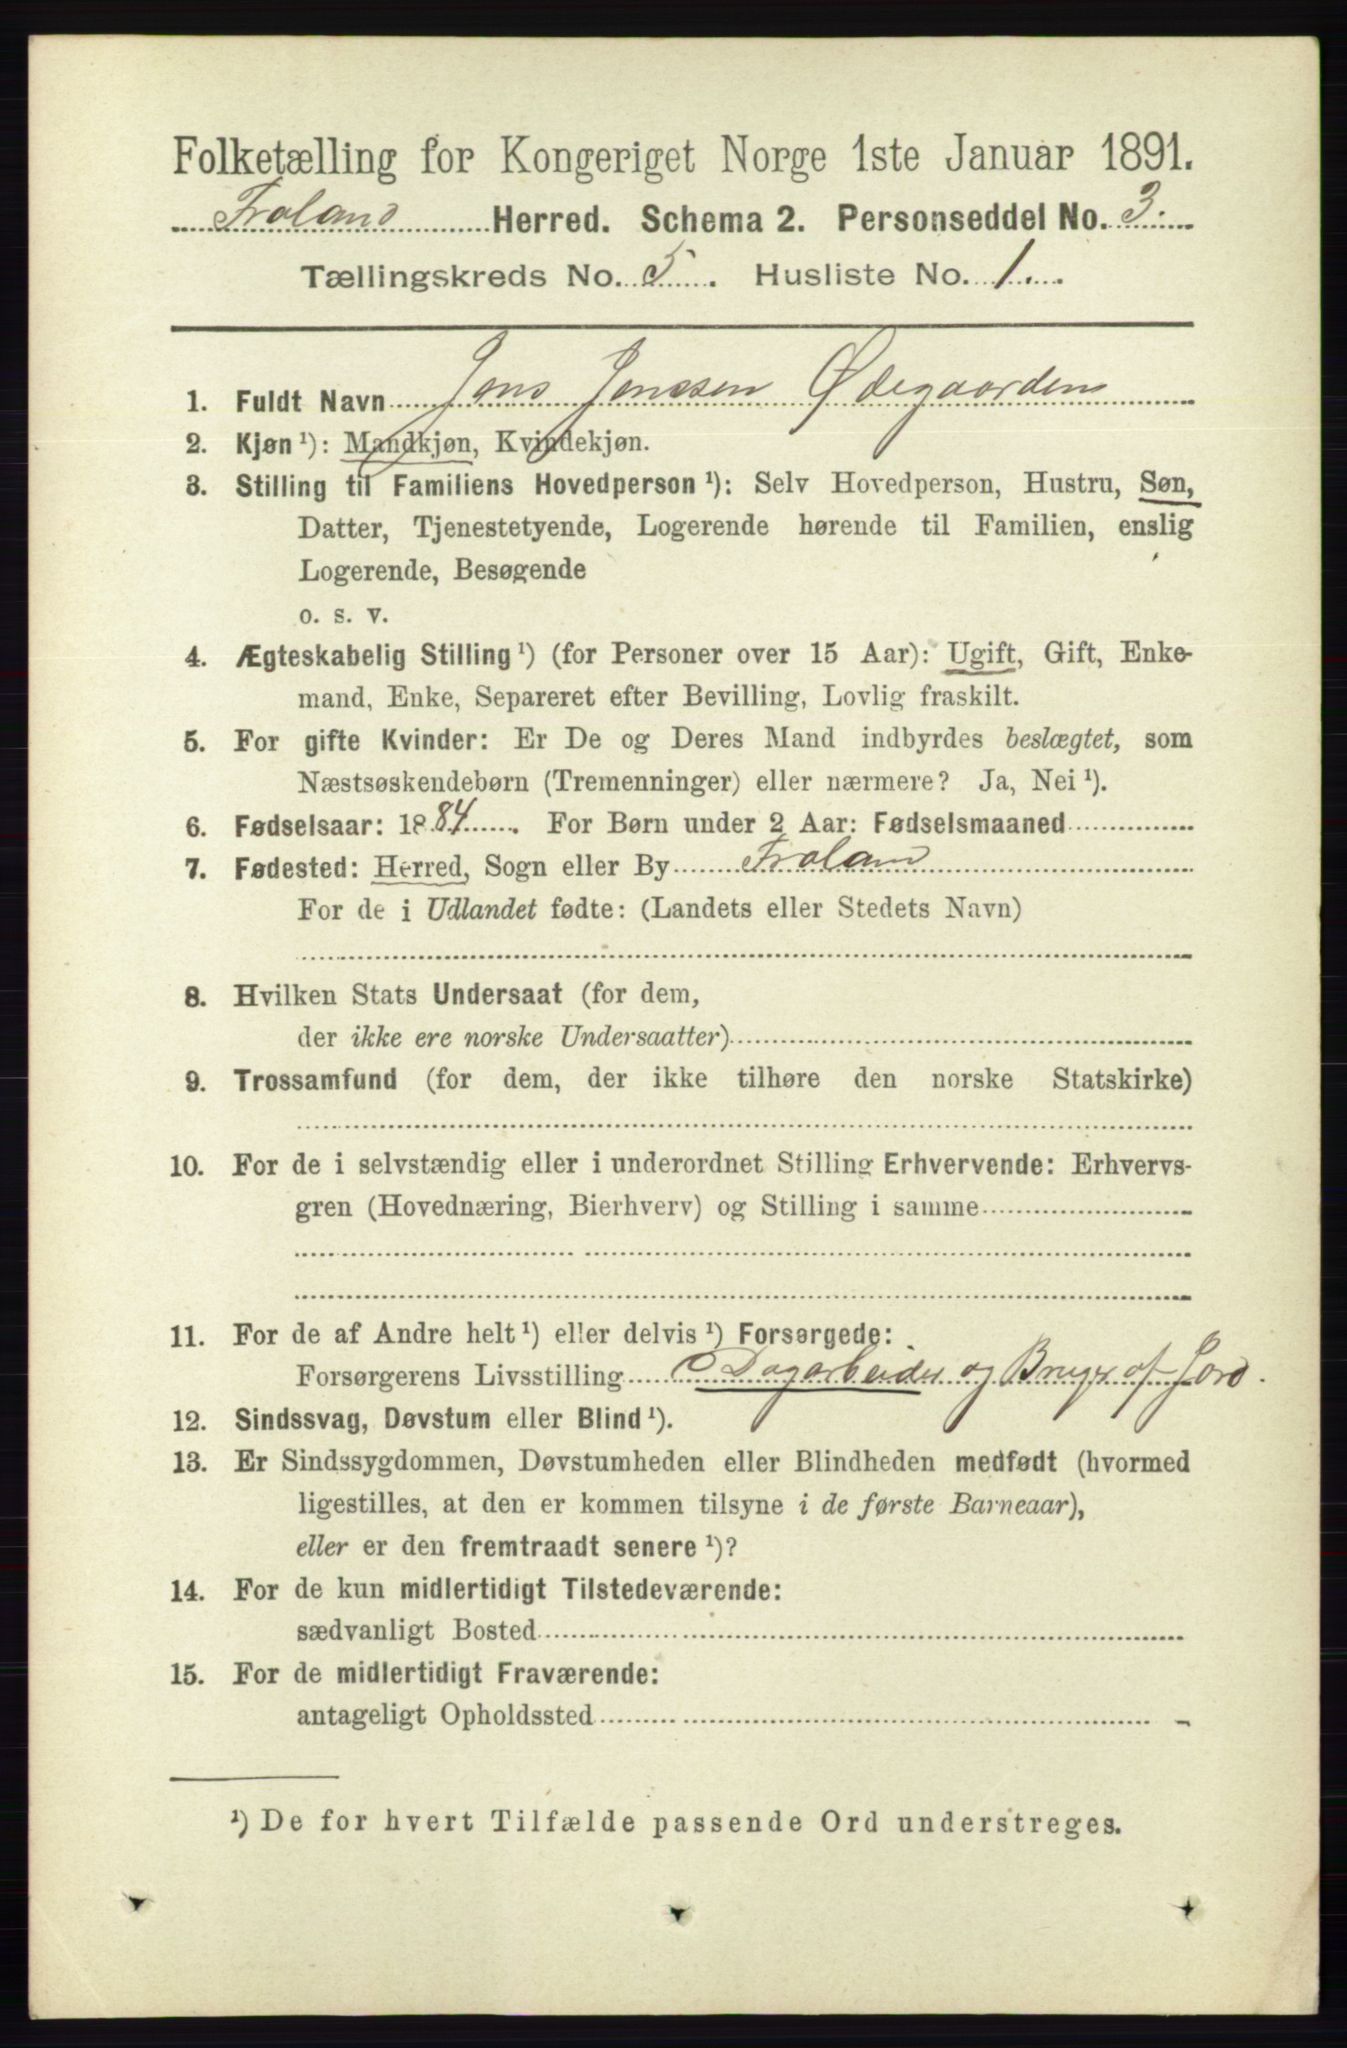 Folketælling for Kongeriget Norge 1ste Januar 1891.
Froland Herred. Schema 2. Personseddel No. 3.
Tællingskreds No. 5. Husliste No. 1.
1. Fuldt Navn Jens Jenssen Ødegaarden
2. Kjøn ¹): Mandkjøn, Kvindekjøn.
3. Stilling til Familiens Hovedperson ¹): Selv Hovedperson, Hustru, Søn,
Datter, Tjenestetyende, Logerende hørende til Familien, enslig
Logerende, Besøgende
o. s. v.
4. Ægteskabelig Stilling ¹) (for Personer over 15 Aar): Ugift, Gift, Enke-
mand, Enke, Separeret efter Bevilling, Lovlig fraskilt.
5. For gifte Kvinder: Er De og Deres Mand indbyrdes beslægtet, som
Næstsøskendebørn (Tremenninger) eller nærmere? Ja, Nei ¹).
6. Fødselsaar: 1884. For Børn under 2 Aar: Fødselsmaaned
7. Fødested: Herred, Sogn eller By Froland
For de i Udlandet fødte: (Landets eller Stedets Navn)
8. Hvilken Stats Undersaat (for dem,
der ikke ere norske Undersaatter)
9. Trossamfund (for dem, der ikke tilhøre den norske Statskirke)
10. For de i selvstændig eller i underordnet Stilling Erhvervende: Erhvervs-
gren (Hovednæring, Bierhverv) og Stilling i samme
11. For de af Andre helt ¹) eller delvis ¹) Forsørgede:
Forsørgerens Livsstilling Dagarbeider og Bruger af Jord.
12. Sindssvag, Døvstum eller Blind ¹).
13. Er Sindssygdommen, Døvstumheden eller Blindheden medfødt (hvormed
ligestilles, at den er kommen tilsyne i de første Barneaar),
eller er den fremtraadt senere ¹)?
14. For de kun midlertidigt Tilstedeværende:
sædvanligt Bosted
15. For de midlertidigt Fraværende:
antageligt Opholdssted
¹) De for hvert Tilfælde passende Ord understreges.